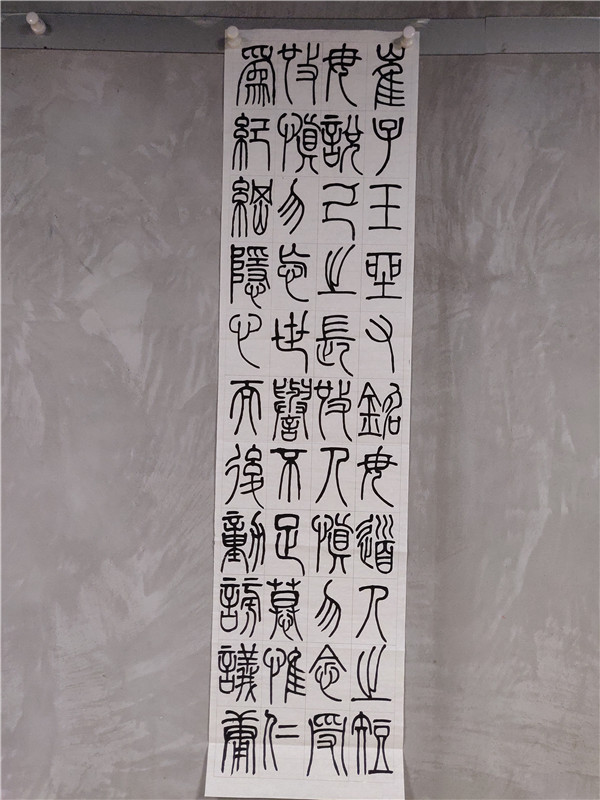 崔子玉坐又銘毋道人之短
毋說己之長施人慎勿念受
施慎勿忘世譽不足慕惟仁
為紀綱隱心而後動謗議庸